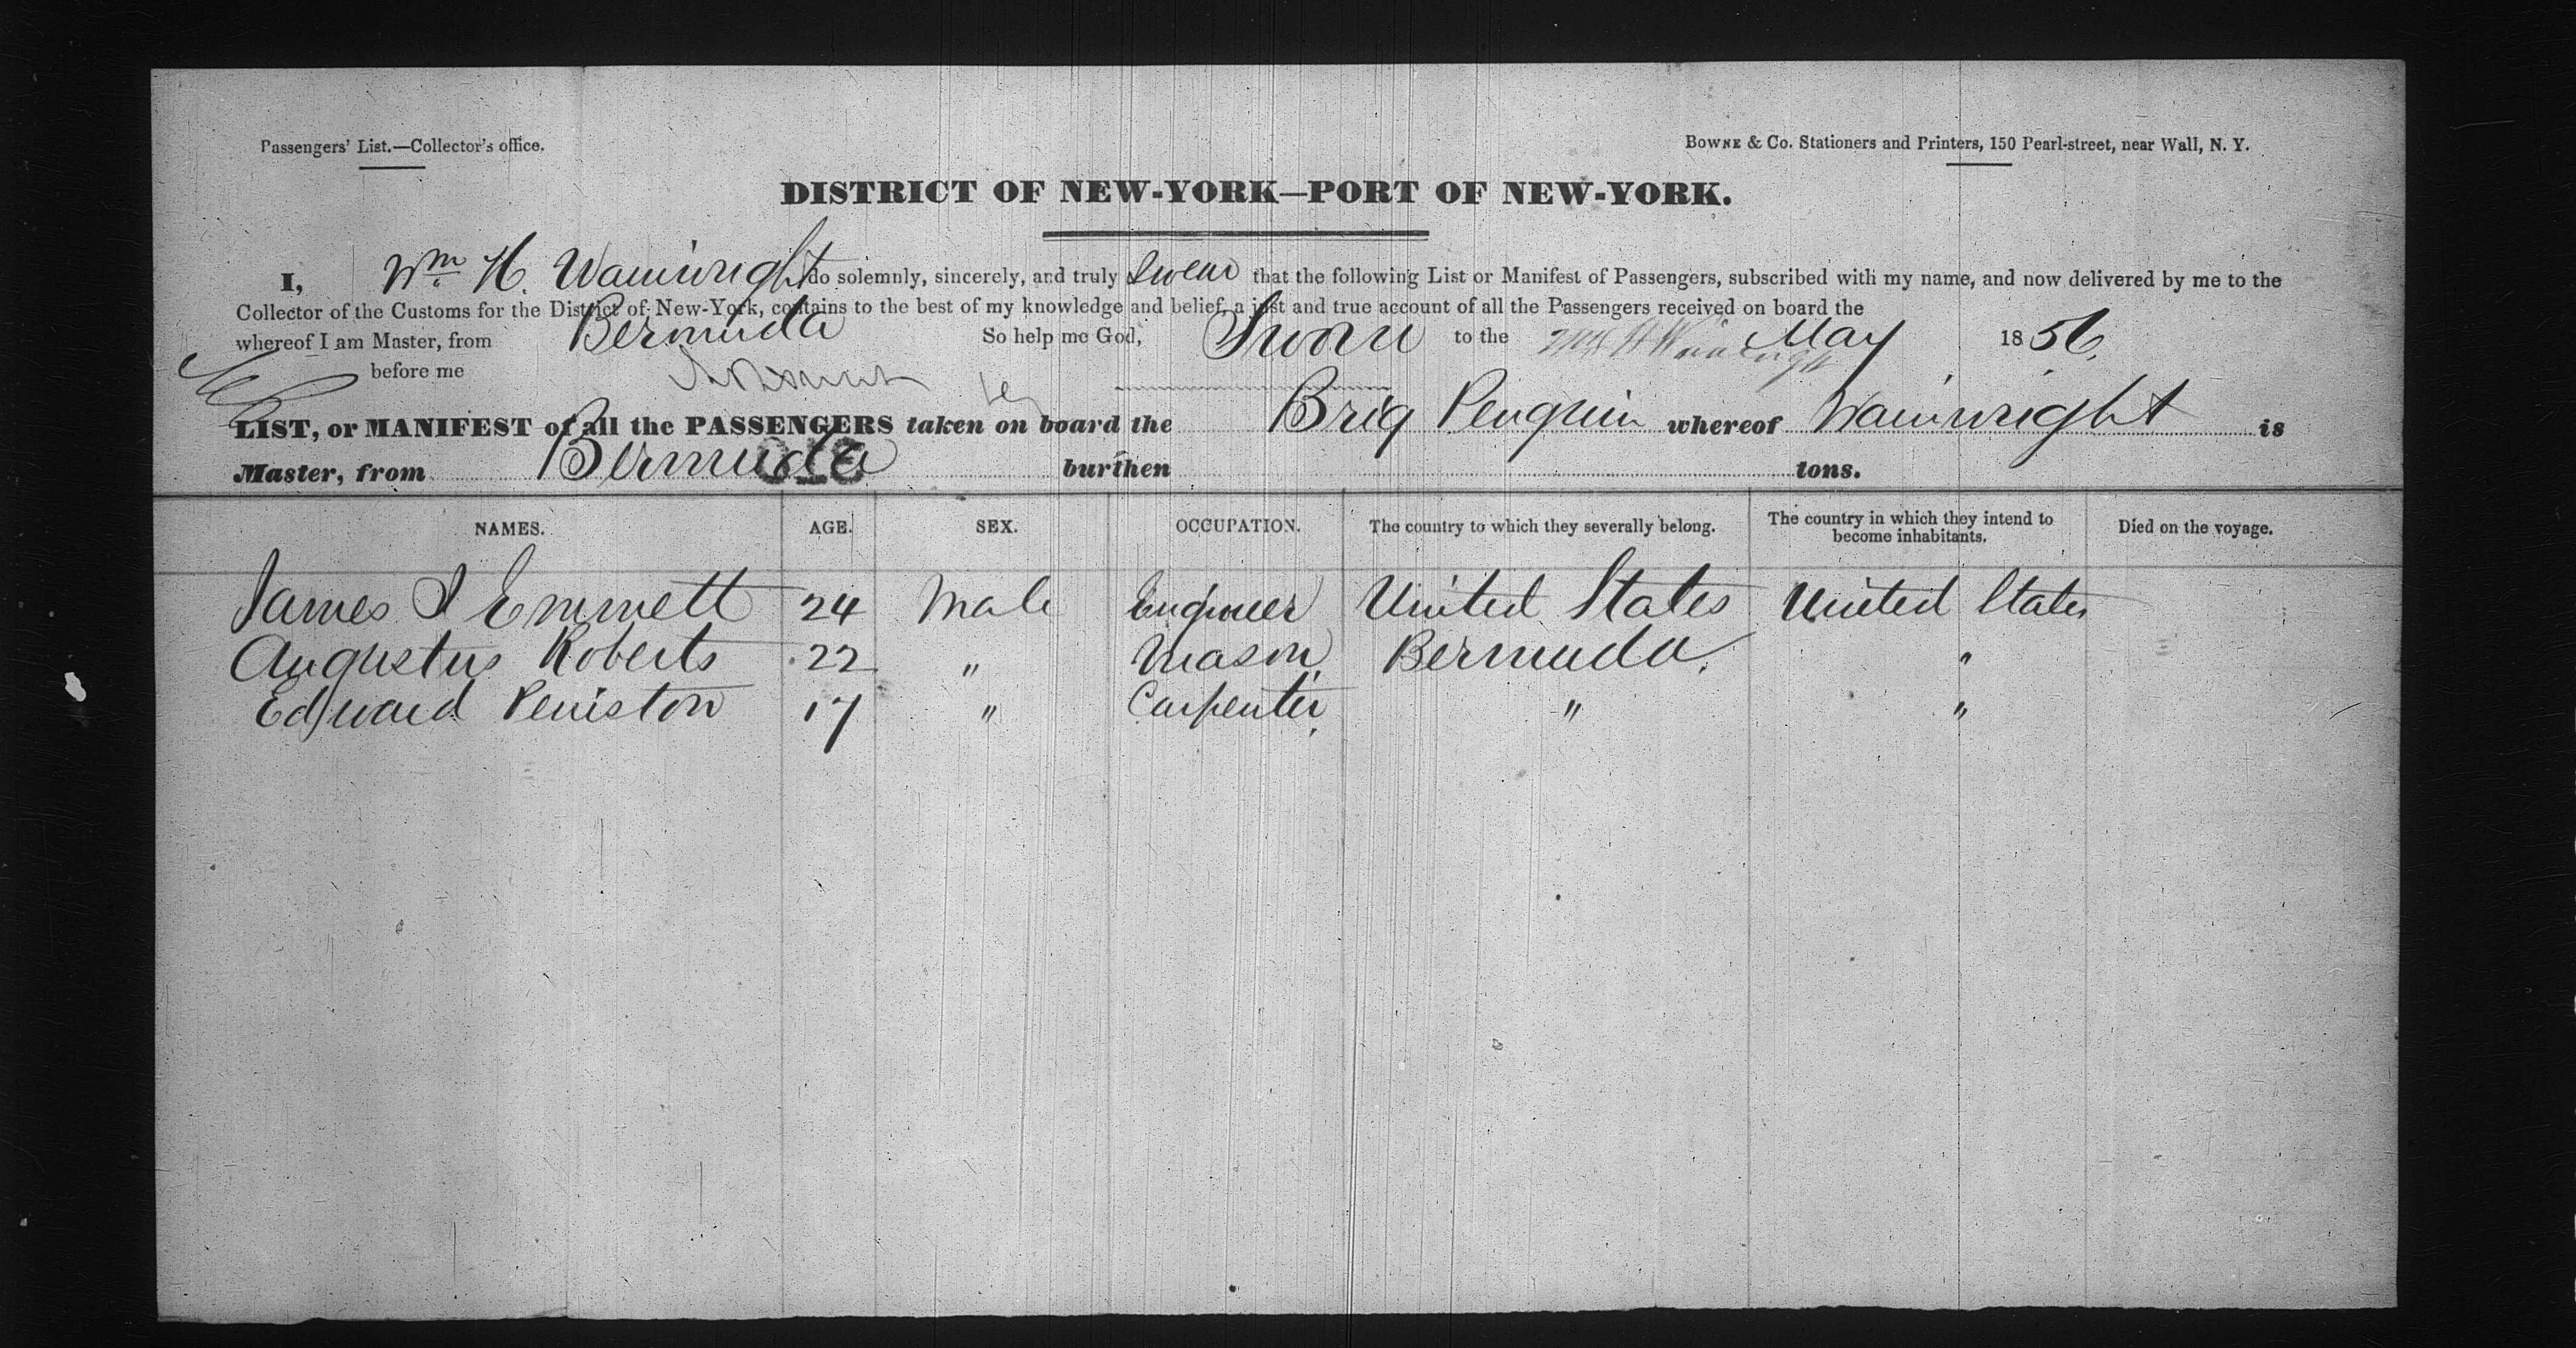 Passengers' List.—Collector's office.
Bowne & Co. Stationers and Printers, 150 Pearl-street, near Wall, N. Y.
DISTRICT OF NEW-YORK—PORT OF NEW-YORK.
I, Wm H. Wainwright do solemnly, sincerely, and truly swear that the following List or Manifest of Passengers, subscribed with my name, and now delivered by me to the
Collector of the Customs for the District of New-York, contains to the best of my knowledge and belief, a just and true account of all the Passengers received on board the
whereof I am Master, from Bermuda So help me God, Sworn to the May 1856.
before me
LIST, or MANIFEST of all the PASSENGERS taken on board the Brig Penguin whereof Wainwright is
Master, from Bermuda burthen tons.
NAMES. AGE. SEX. OCCUPATION. The country to which they severally belong. The country in which they intend to become inhabitants. Died on the voyage.
James I Emmett 24 Male Engineer United States United States
Augustus Roberts 22 " Mason Bermuda. "
Edward Peniston 17 " Carpenter " "